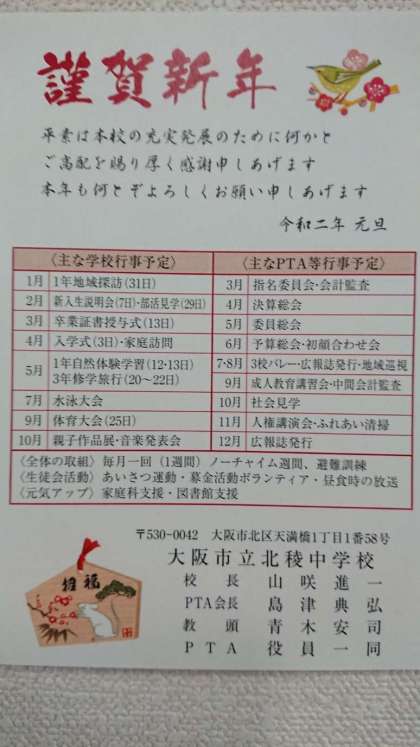 謹賀新年
平素は本校の充実発展のために何かと
ご高配を賜り厚く感謝申しあげます
本年も何とぞよろしくお願い申しあげます
令和二年 元旦
〈主な学校行事予定〉
1月 1年地域探訪(31日)
2月 新入生説明会(7日)・部活見学(29日)
3月 卒業証書授与式(13日)
4月 入学式(3日)・家庭訪問
5月 1年自然体験学習(12・13日)
3年修学旅行(20〜22日)
7月 水泳大会
9月 体育大会(25日)
10月 親子作品展・音楽発表会
〈主なPTA等行事予定〉
3月 指名委員会・会計監査
4月 決算総会
5月 委員総会
6月 予算総会・初顔合わせ会
7・8月 3校バレー・広報誌発行・地域巡視
9月 成人教育講習会・中間会計監査
10月 社会見学
11月 人権講演会・ふれあい清掃
12月 広報誌発行
〈全体の取組〉毎月一回(1週間)ノーチャイム週間、避難訓練
〈生徒会活動〉あいさつ運動・募金活動ボランティア・昼食時の放送
〈元気アップ〉家庭科支援・図書館支援
〒530-0042 大阪市北区天満橋1丁目1番58号
大阪市立北稜中学校
校長 山咲進一
PTA会長 島津典弘
教頭 青木安司
PTA 役員一同
招福